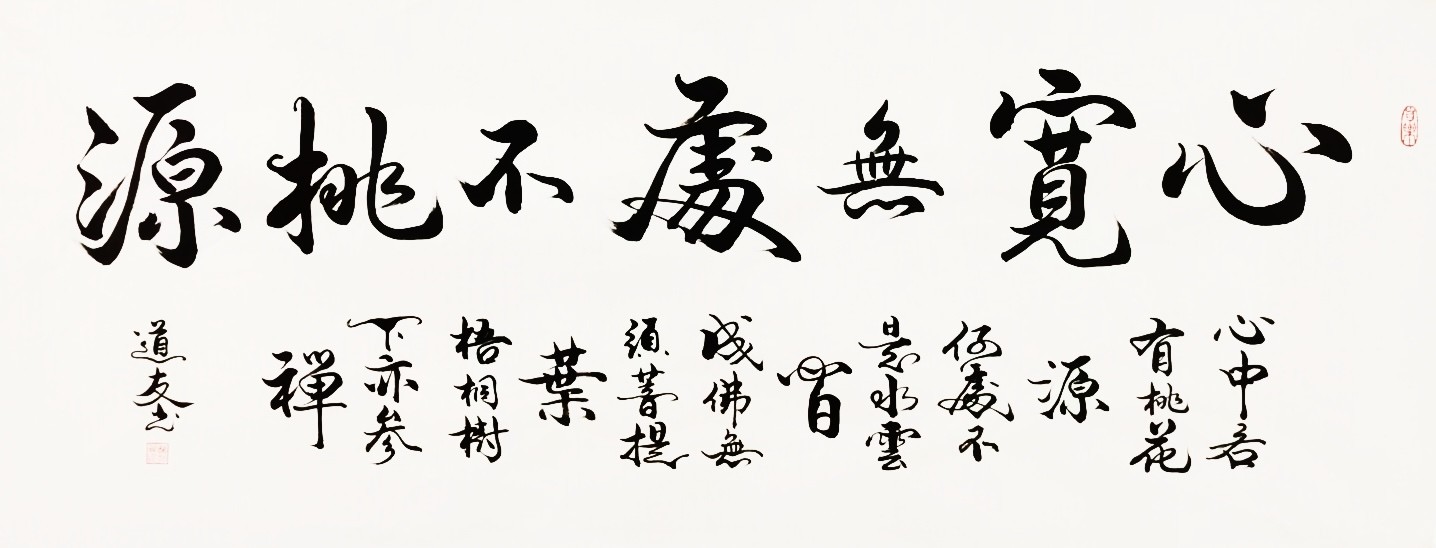 心寬無處不桃源
心中若
有桃花
源
何處不
是水雲
間
成佛無
須菩提
葉
梧桐樹
下亦參
禪
道友书